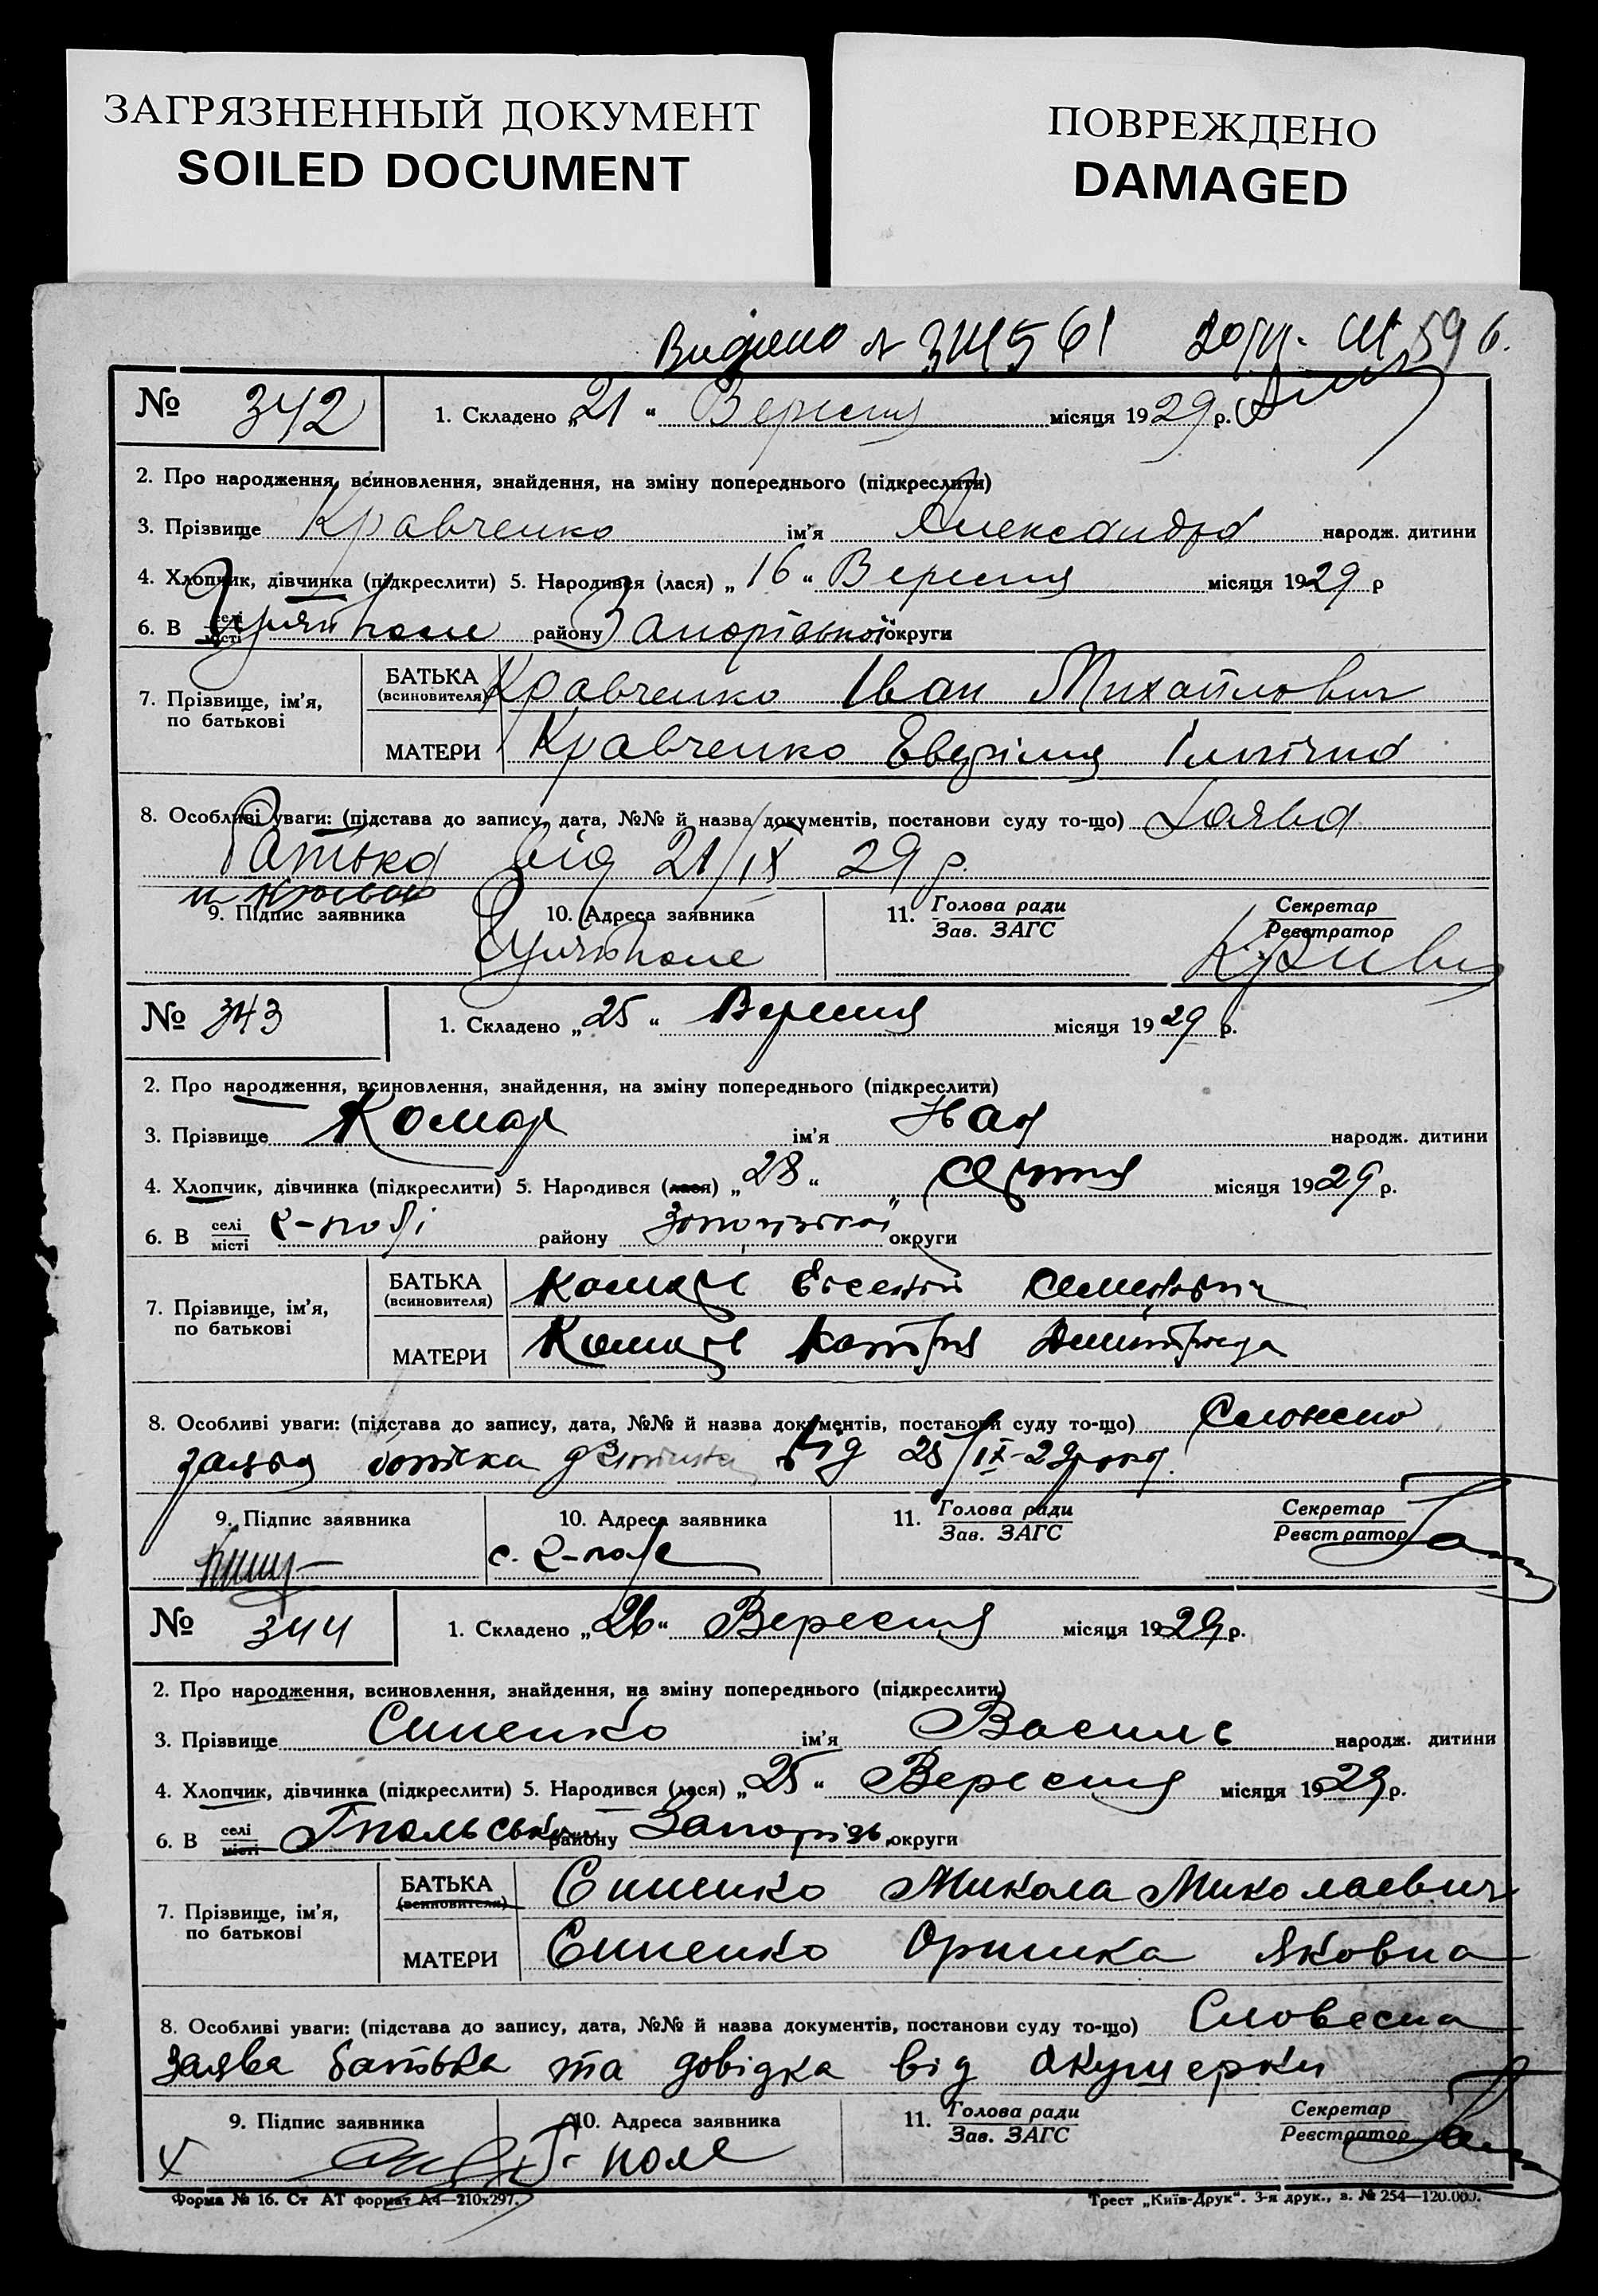 ЗАГРЯЗНЕННЫЙ ДОКУМЕНТ
SOILED DOCUMENT
ПОВРЕЖДЕНО
DAMAGED
№ 342
1. Складено „21“ Вересня місяця 1929 р.
2. Про народження, всиновлення, знайдення, на зміну попереднього (підкреслити)
3. Прізвище Кравченко ім'я Александра народж. дитини
4. Хлопчик, дівчинка (підкреслити) 5. Народився (лася) „16“ Вересня місяця 1929 р
6. В селі місті району Запорізької округи
7. Прізвище, ім'я, по батькові
БАТЬКА (всиновителя) Кравченко Іван Михайлович
МАТЕРИ Кравченко
8. Особливі уваги: (підстава до запису, дата, №№ й назва документів, постанови суду то-що) Заява
батька від 21/ІХ 29 р.
9. Підпис заявника
10. Адреса заявника
11. Голова ради Зав. ЗАГС
Секретар Реєстратор
№ 343
1. Складено „25“ Вересня місяця 1929 р.
2. Про народження, всиновлення, знайдення, на зміну попереднього (підкреслити)
3. Прізвище Комар ім'я народж. дитини
4. Хлопчик, дівчинка (підкреслити) 5. Народився (лася) „28“ Серпня місяця 1929 р.
6. В селі місті району Запорізької округи
7. Прізвище, ім'я, по батькові
БАТЬКА (всиновителя) Комар Евсентій Семенович
МАТЕРИ Комар Катря
8. Особливі уваги: (підстава до запису, дата, №№ й назва документів, постанови суду то-що) Словесно
заява батька від 25/ІХ-29 року.
9. Підпис заявника
10. Адреса заявника
с. Г-поле
11. Голова ради Зав. ЗАГС
Секретар Реєстратор
№ 344
1. Складено „26“ Вересня місяця 1929 р.
2. Про народження, всиновлення, знайдення, на зміну попереднього (підкреслити)
3. Прізвище Синенко ім'я Василь народж. дитини
4. Хлопчик, дівчинка (підкреслити) 5. Народився (лася) „25“ Вересня місяця 1929 р.
6. В селі місті Гпольськ. району Запорізь. округи
7. Прізвище, ім'я, по батькові
БАТЬКА (всиновителя) Синенко Микола Миколаевич
МАТЕРИ Синенко Оришка Яковна
8. Особливі уваги: (підстава до запису, дата, №№ й назва документів, постанови суду то-що) Словесна
заява батька та довідка від акушерки
9. Підпис заявника
10. Адреса заявника
Г-поле
11. Голова ради Зав. ЗАГС
Секретар Реєстратор
Форма № 16. Ст АТ формат А4—210х297.
Трест „Київ-Друк“. 3-я друк., з. № 254—120.000.